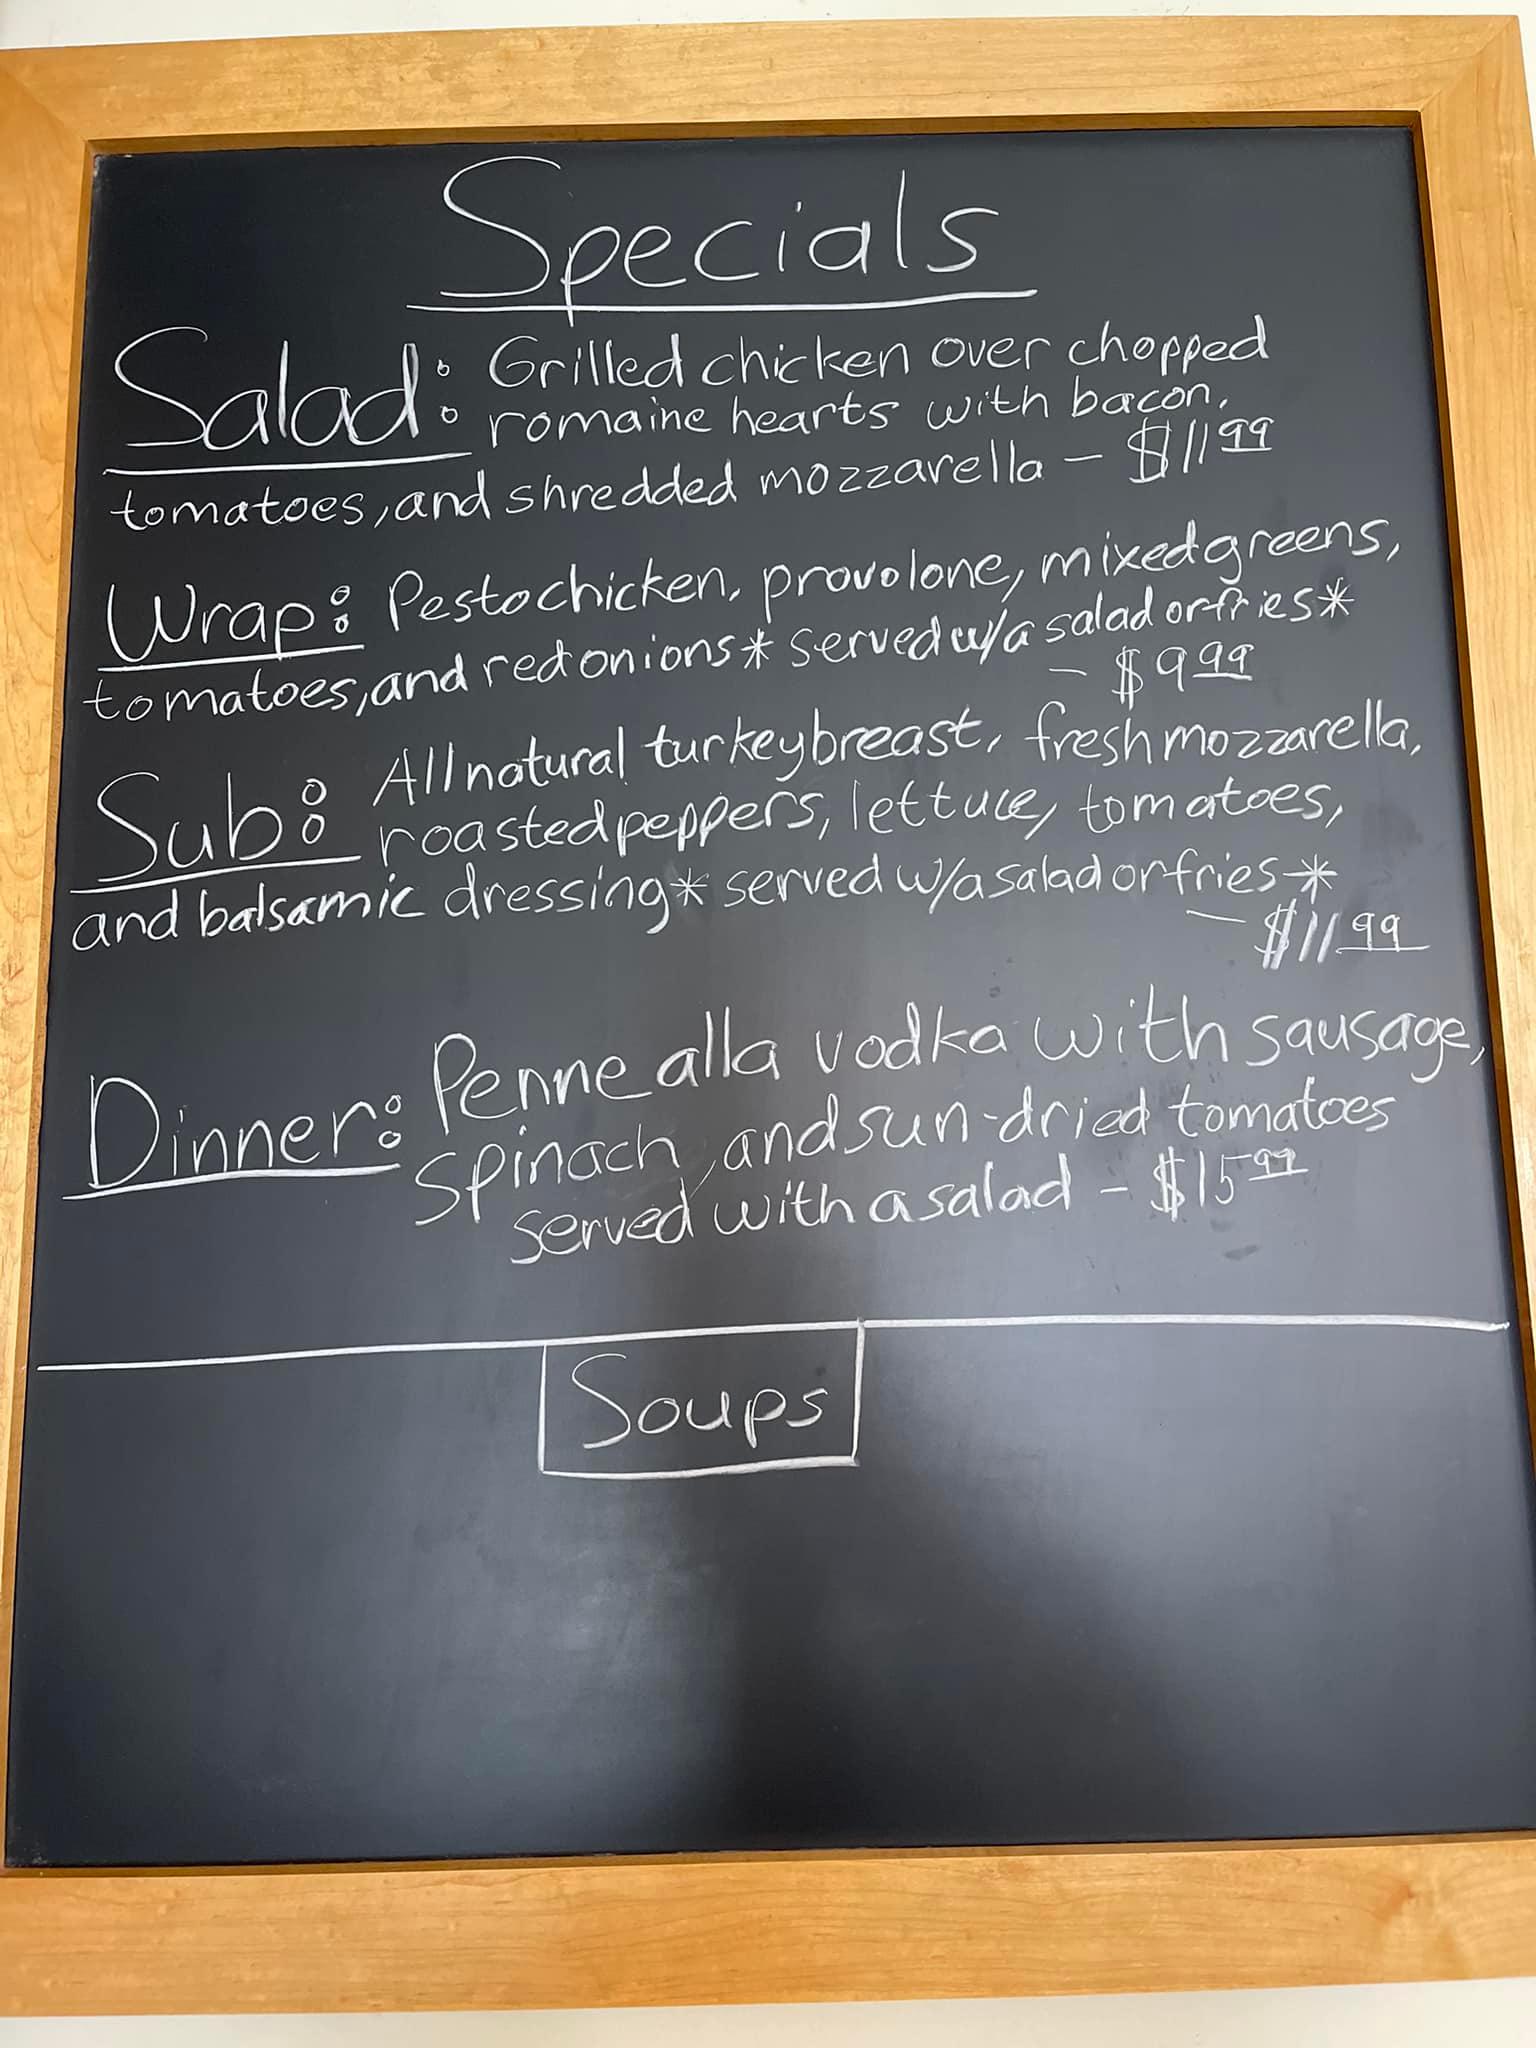 Specials
Salad: Grilled chicken over chopped
romaine hearts with bacon,
tomatoes, and shredded mozzarella - $11.99
Wrap: Pesto chicken, provolone, mixed greens,
tomatoes, and red onions * served w/a salad or fries *
- $9.99
Sub: All natural turkey breast, fresh mozzarella,
roasted peppers, lettuce, tomatoes,
and balsamic dressing * served w/a salad or fries *
- $11.99
Dinner: Penne alla vodka with sausage,
spinach, and sun-dried tomatoes
served with a salad - $15.99
Soups